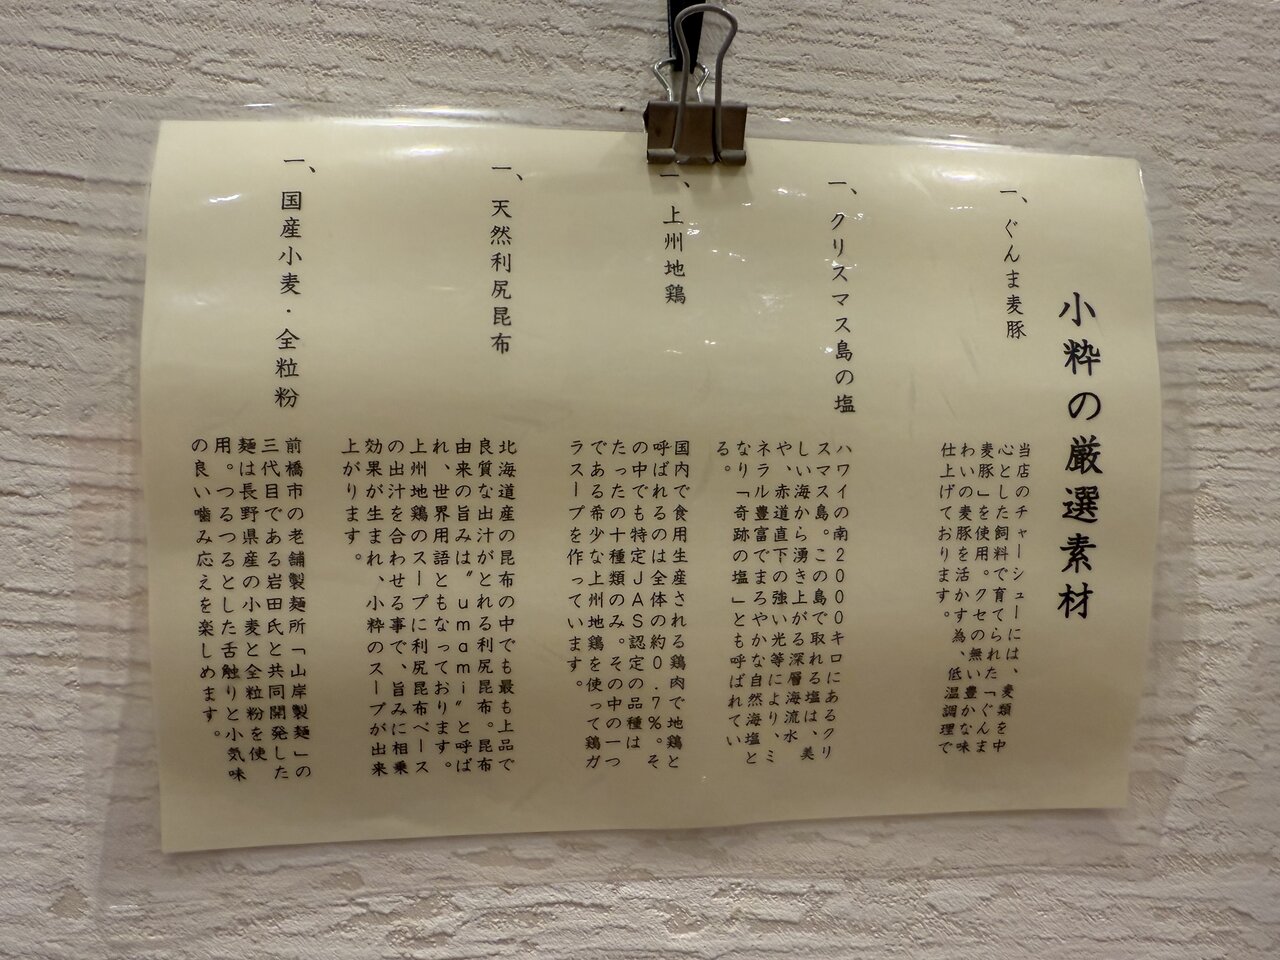 小粋の厳選素材
一、ぐんま麦豚
当店のチャーシューには、麦類を中
心とした飼料で育てられた「ぐんま
麦豚」を使用。クセの無い豊かな味
わいの麦豚を活かす為、低温調理で
仕上げております。
一、クリスマス島の塩
ハワイの南2000キロにあるクリ
スマス島。この島で取れる塩は、美
しい海から湧き上がる深層海流水
や、赤道直下の強い光等により、ミ
ネラル豊富でまろやかな自然海塩と
なり「奇跡の塩」とも呼ばれてい
る。
一、上州地鶏
国内で食用生産される鶏肉で地鶏と
呼ばれるのは全体の約0.7%。そ
の中でも特定JAS認定の品種は
たったの十種類のみ。その中の一つ
である希少な上州地鶏を使って鶏ガ
ラスープを作っています。
一、天然利尻昆布
北海道産の昆布の中でも最も上品で
良質な出汁がとれる利尻昆布。昆布
由来の旨みは〝umami〟と呼ば
れ、世界用語ともなっております。
上州地鶏のスープに利尻昆布ベース
の出汁を合わせる事で、旨みに相乗
効果が生まれ、小粋のスープが出来
上がります。
一、国産小麦・全粒粉
前橋市の老舗製麺所「山岸製麺」の
三代目である岩田氏と共同開発した
麺は長野県産の小麦と全粒粉を使
用。つるつるとした舌触りと小気味
の良い噛み応えを楽しめます。